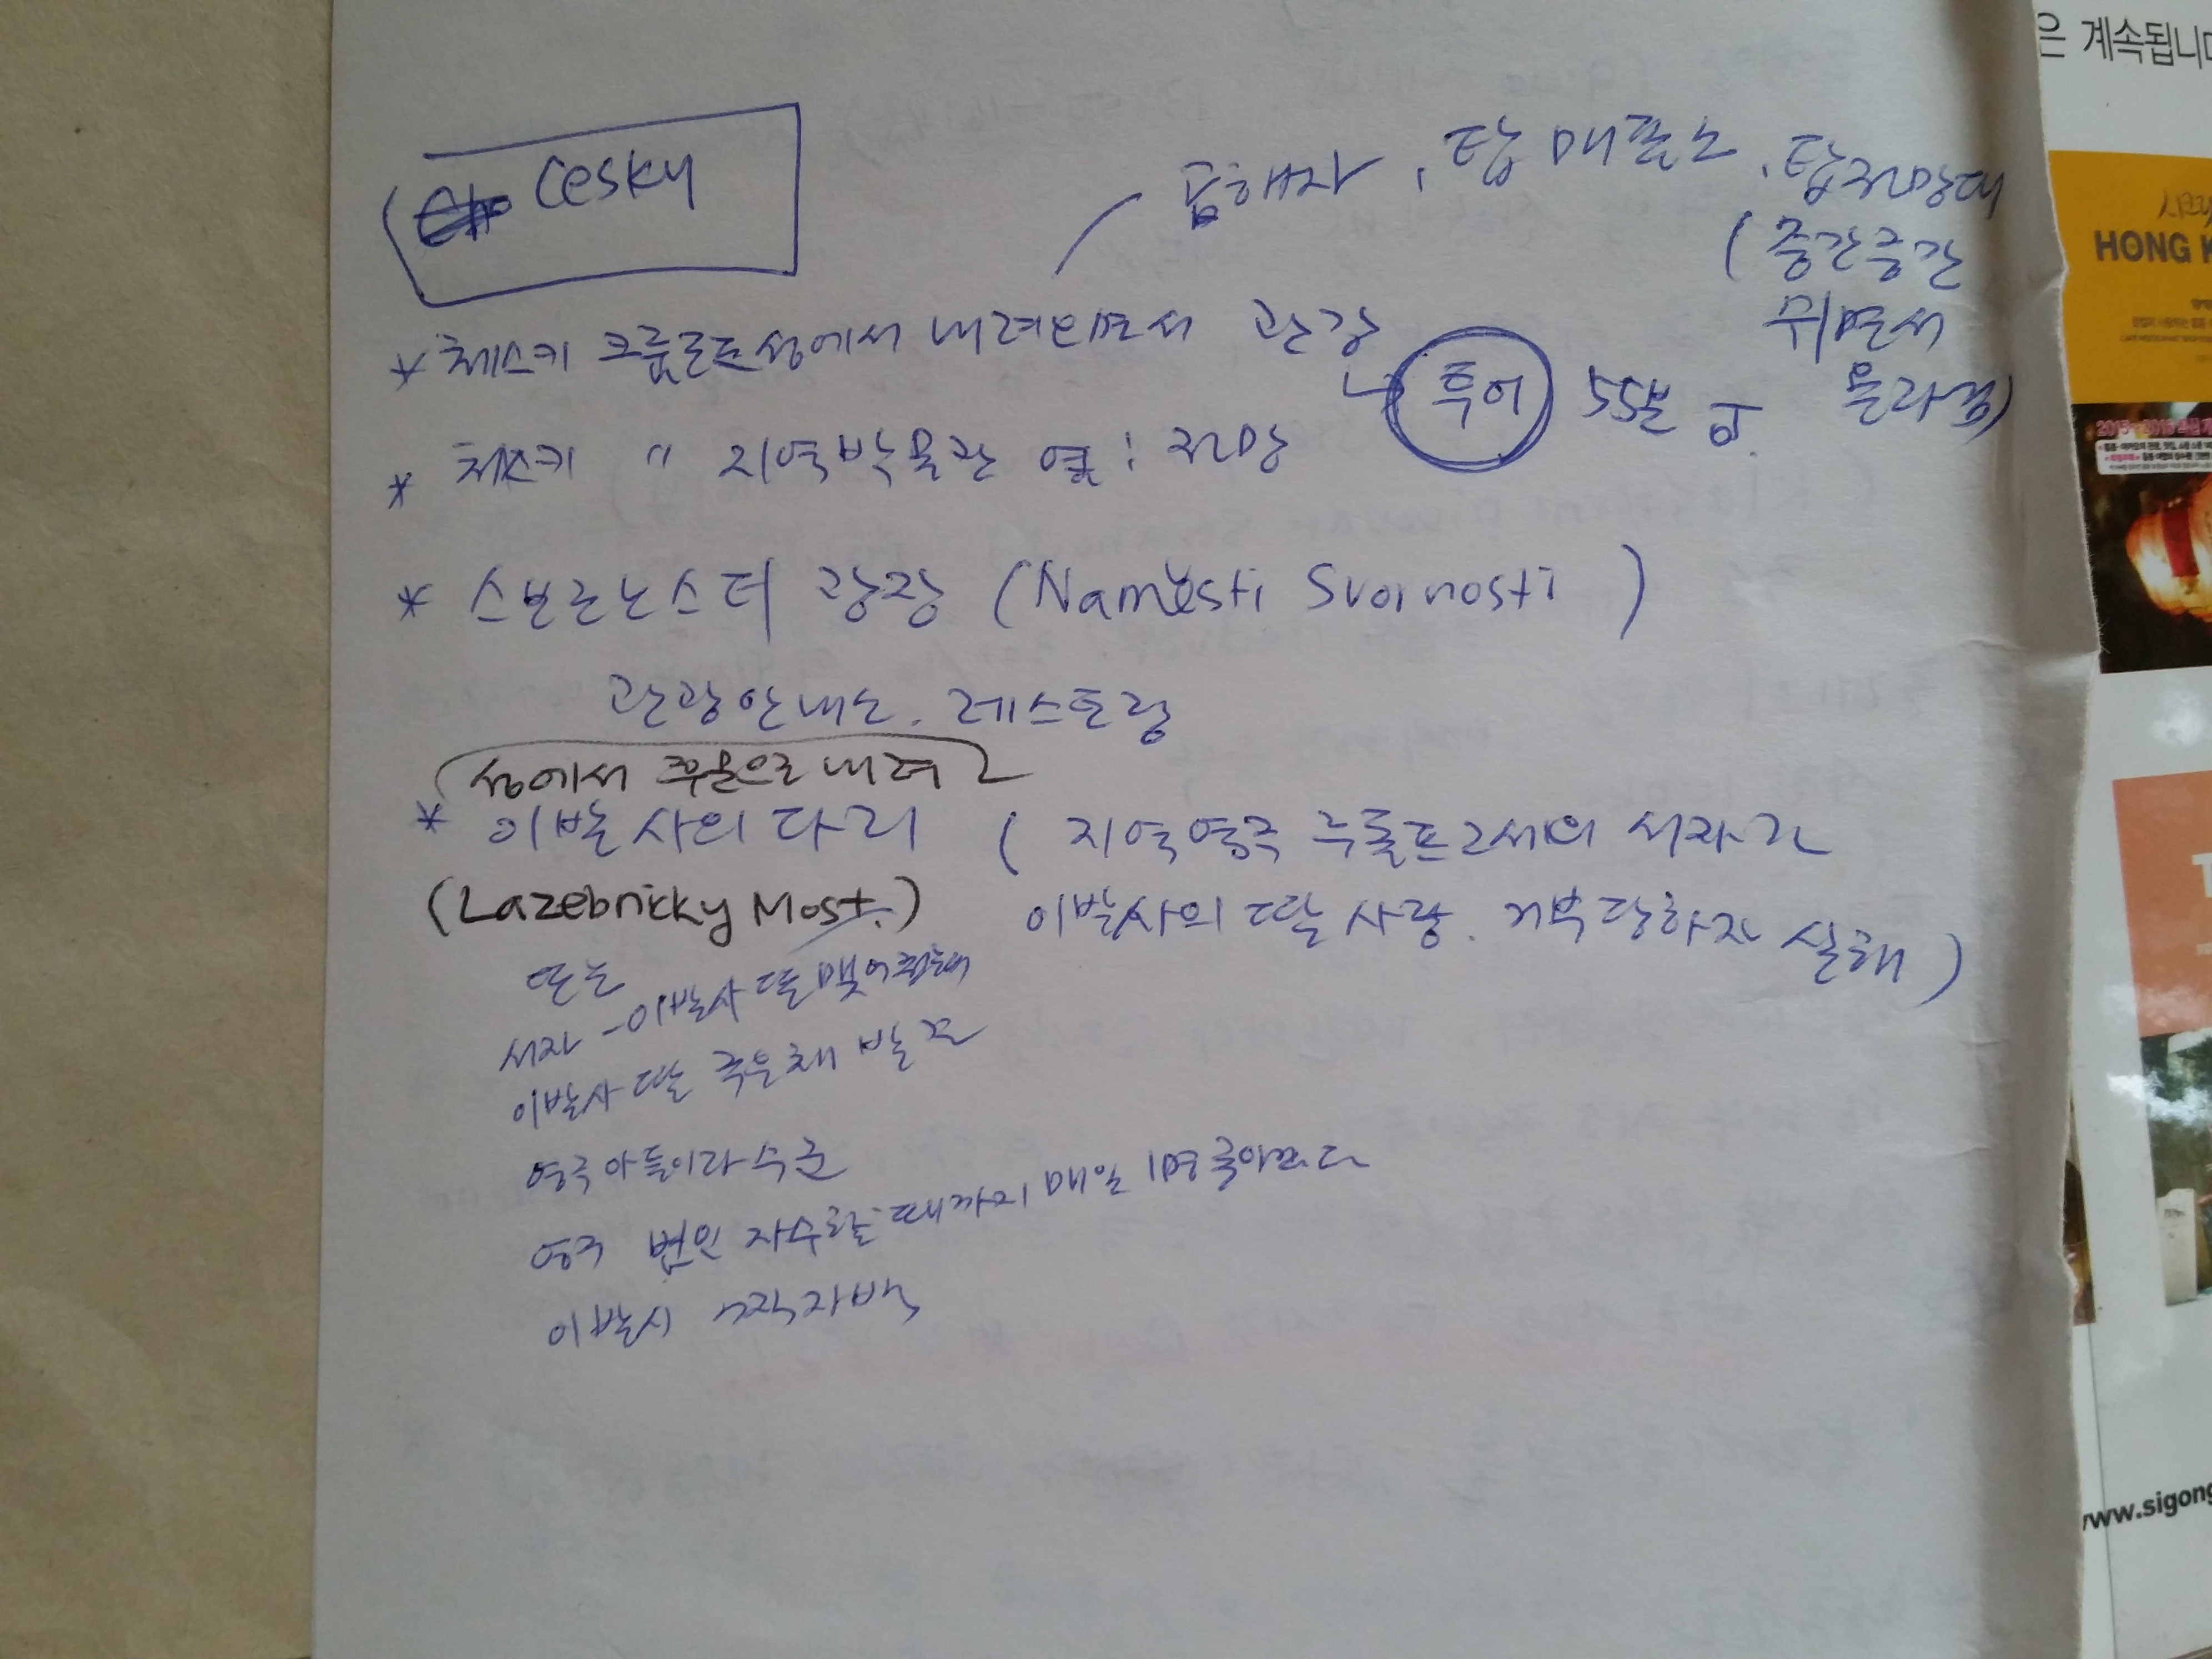 Cesky
곰해자, 탑매표소, 탑전망대
(중간중간
쉬면서
올라감)
* 체스키 크룸로프성에서 내려오면서 관광
투어 55분
* 체스키 〃 지역박물관 옆: 전망
* 스보르노스티 광장 (Naměsti Svornosti)
관광안내소. 레스토랑
성에서 쭈욱으로 내려
* 이발사의 다리 (지역영주 루돌프2세의 서자가
(Lazebnicky Most.) 이발사의 딸 사랑. 거부당하자 살해)
또는
서자 - 이발사 딸 맺어졌는데
이발사 딸 죽은채 발견
영주아들이라 수군
영주 범인 자수할때까지 매일 1명 죽이겠다
이발사 거짓자백
은 계속됩니다
HONG K
www.sigong